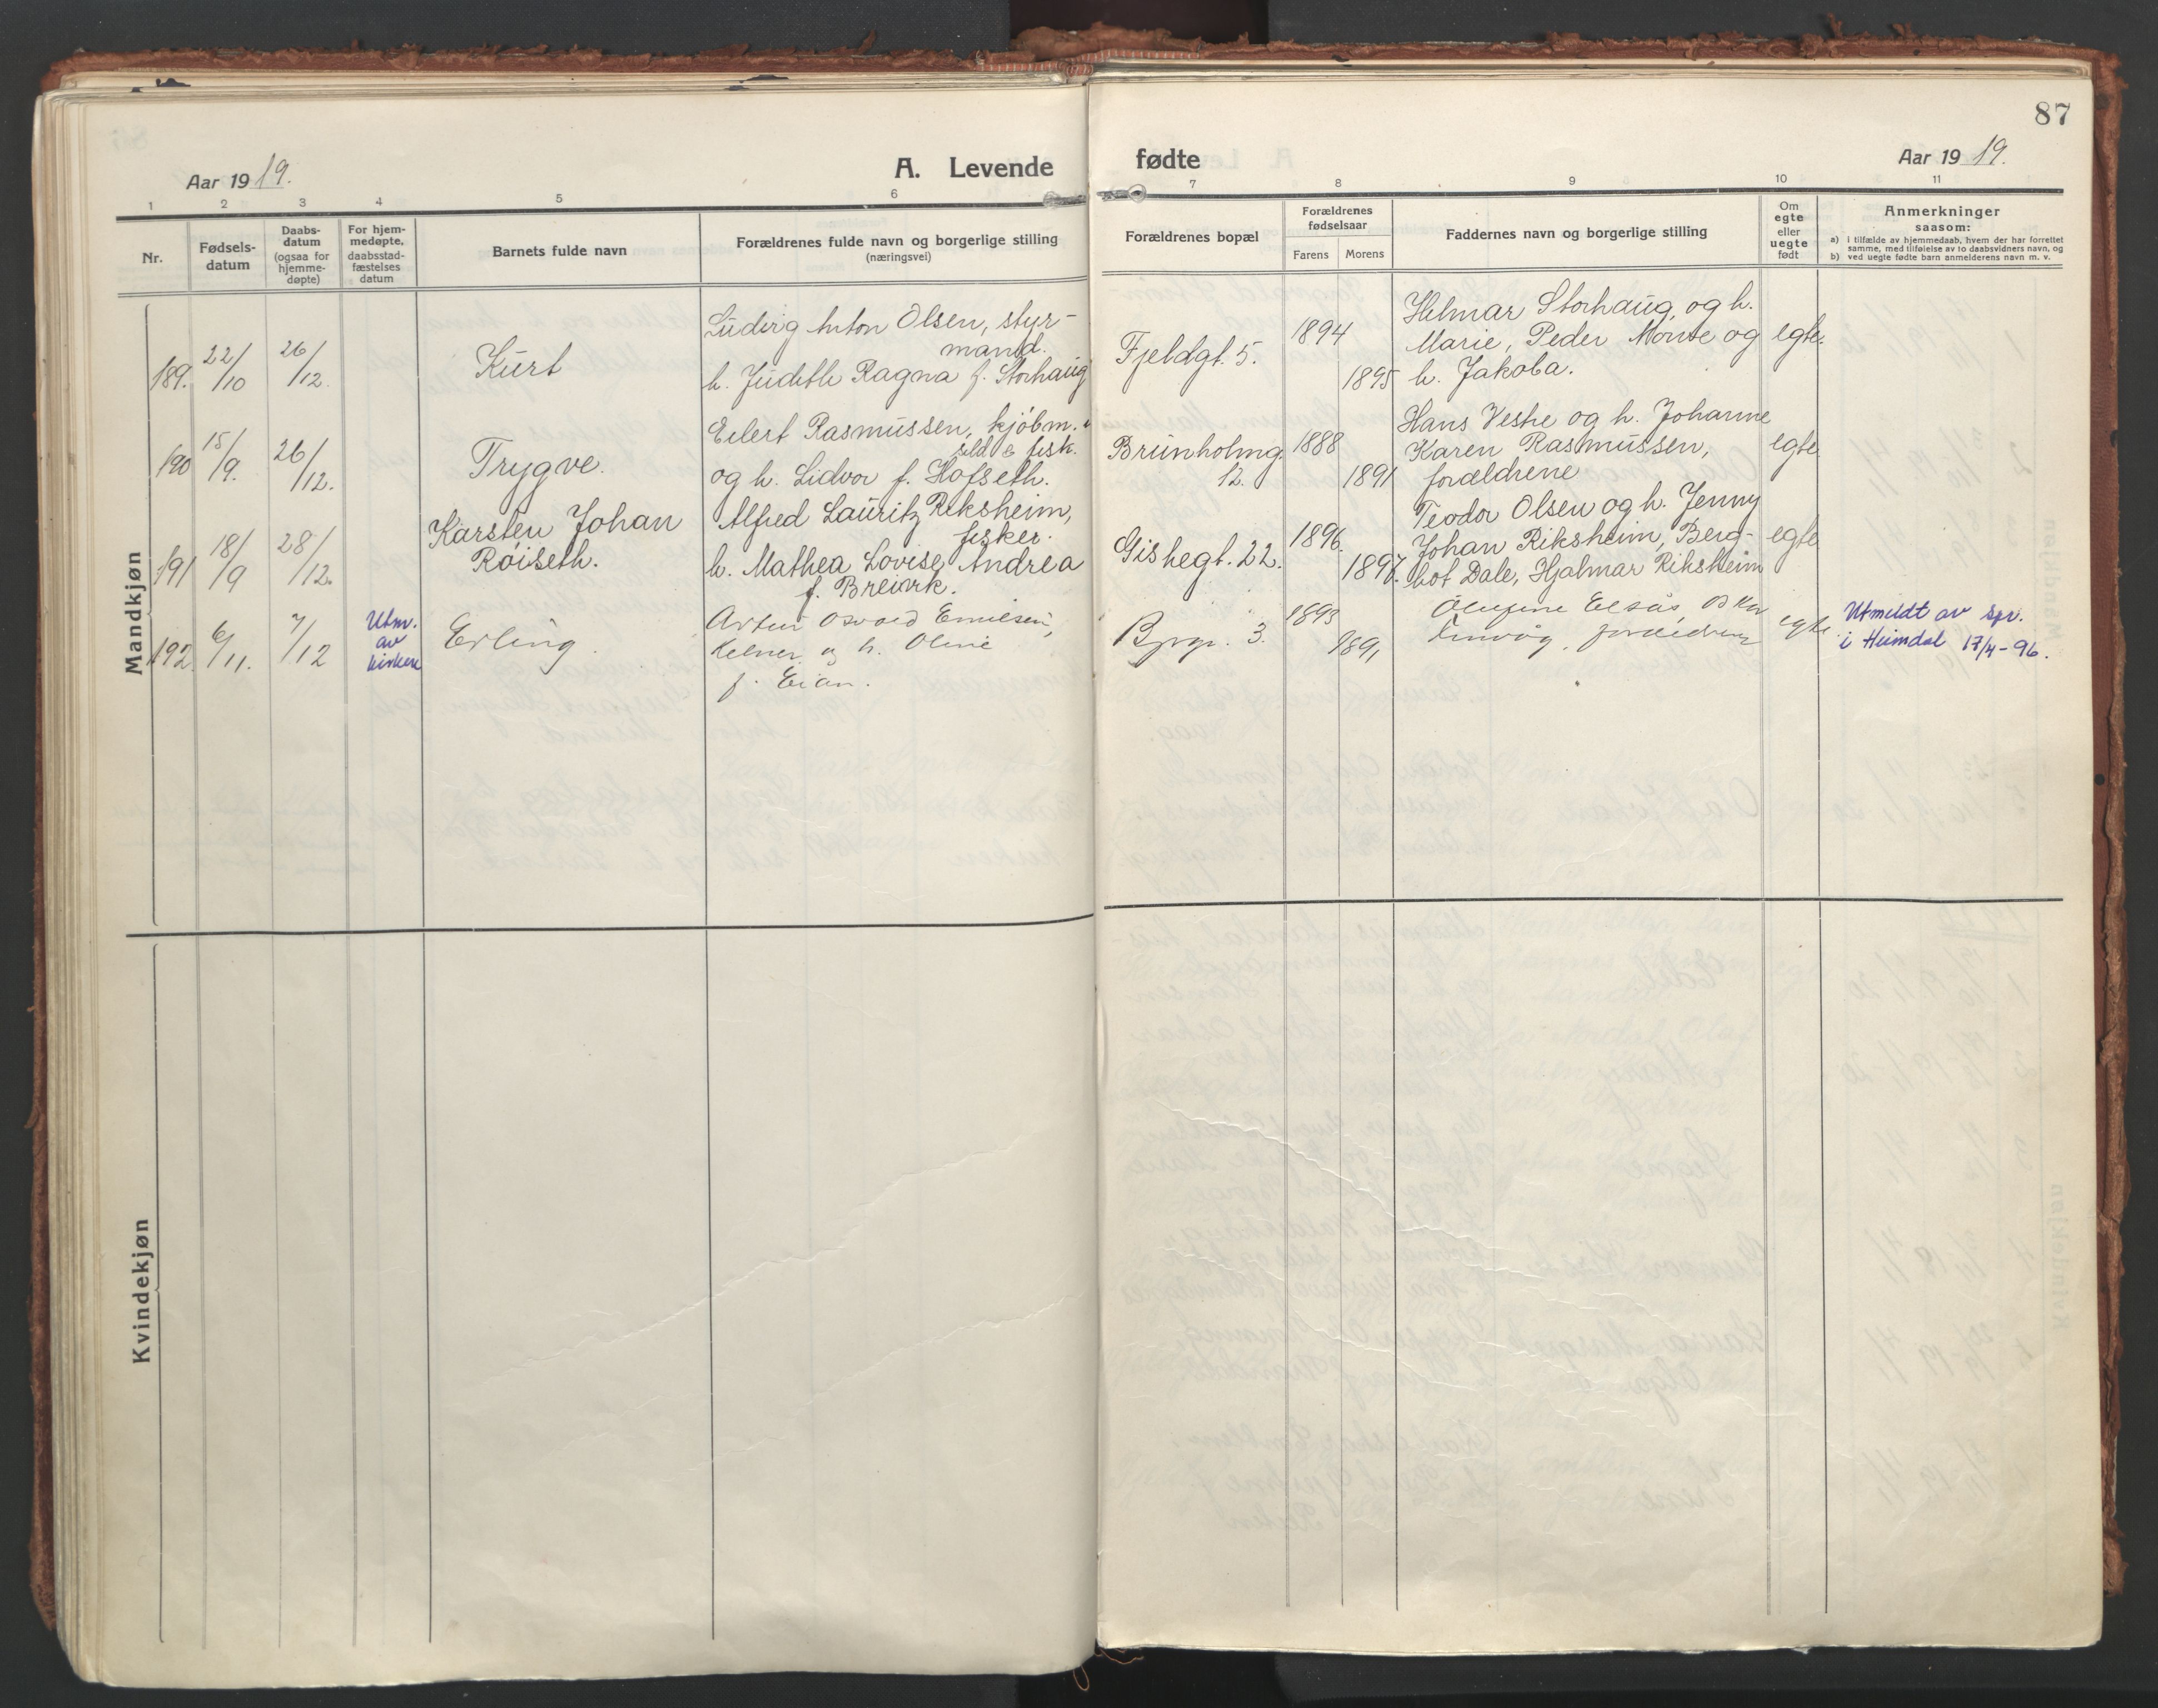 87
Aar 1919.
A. Levende
fødte
Aar 1919.
1 2 3 4 5 6 7 8 9 10 11
Nr.
Fødsels-
datum
Daabs-
datum
(ogsaa for
hjemme-
døpte)
For hjem-
medøpte,
daabsstad-
fæstelses
datum
Barnets fulde navn
Forældrenes fulde navn og borgerlige stilling
(næringsvei)
Forældrenes bopæl
Forældrenes
fødselsaar
Farens
Morens
Faddernes navn og borgerlige stilling
Om
egte
eller
uegte
født
Anmerkninger
saasom:
a) i tilfælde av hjemmedaab, hvem der har forrettet
samme, med tilføielse av to daabsvidners navn, og
b) ved uegte fødte barn anmelderens navn m. v.
Mandkjøn
189.
22/10
26/12.
Kurt
Ludvig Anton Olsen, styr-
mand.
h. Judith Ragna f. Storhaug
Fjeldgt. 5.
1894
1895
Helmar Storhaug, og h.
Marie, Peder og
h. Jakoba.
egte.
190
15/9.
26/12.
Trygve.
Eilert Rasmussen, kjøbm.
sild & fisk.
og h. Lidvor f. Hofseth.
Brunholmg.
12.
1888
1891
Hans og h. Johanne
Karen Rasmussen,
forældrene
egte
191
18/9
28/12.
Karsten Johan
Røiseth.
Alfred Lauritz Riksheim,
fisker.
h. Mathea Lovise Andrea
f. Breivik.
Giskegt. 22.
1896.
1897.
Teodor Olsen og h. Jenny
Johan Riksheim, Berg-
bot Dale, Hjalmar Riksheim
egte
192.
6/11.
7/12
Utm.
av
kirken
Erling.
Artur Osvald Emilsen,
Kelner og h. Oline
f. Eian.
3.
1893
1891
forældrene
egte.
Utmeldt av spr.
i Heimdal 17/4-96.
Kvindekjøn